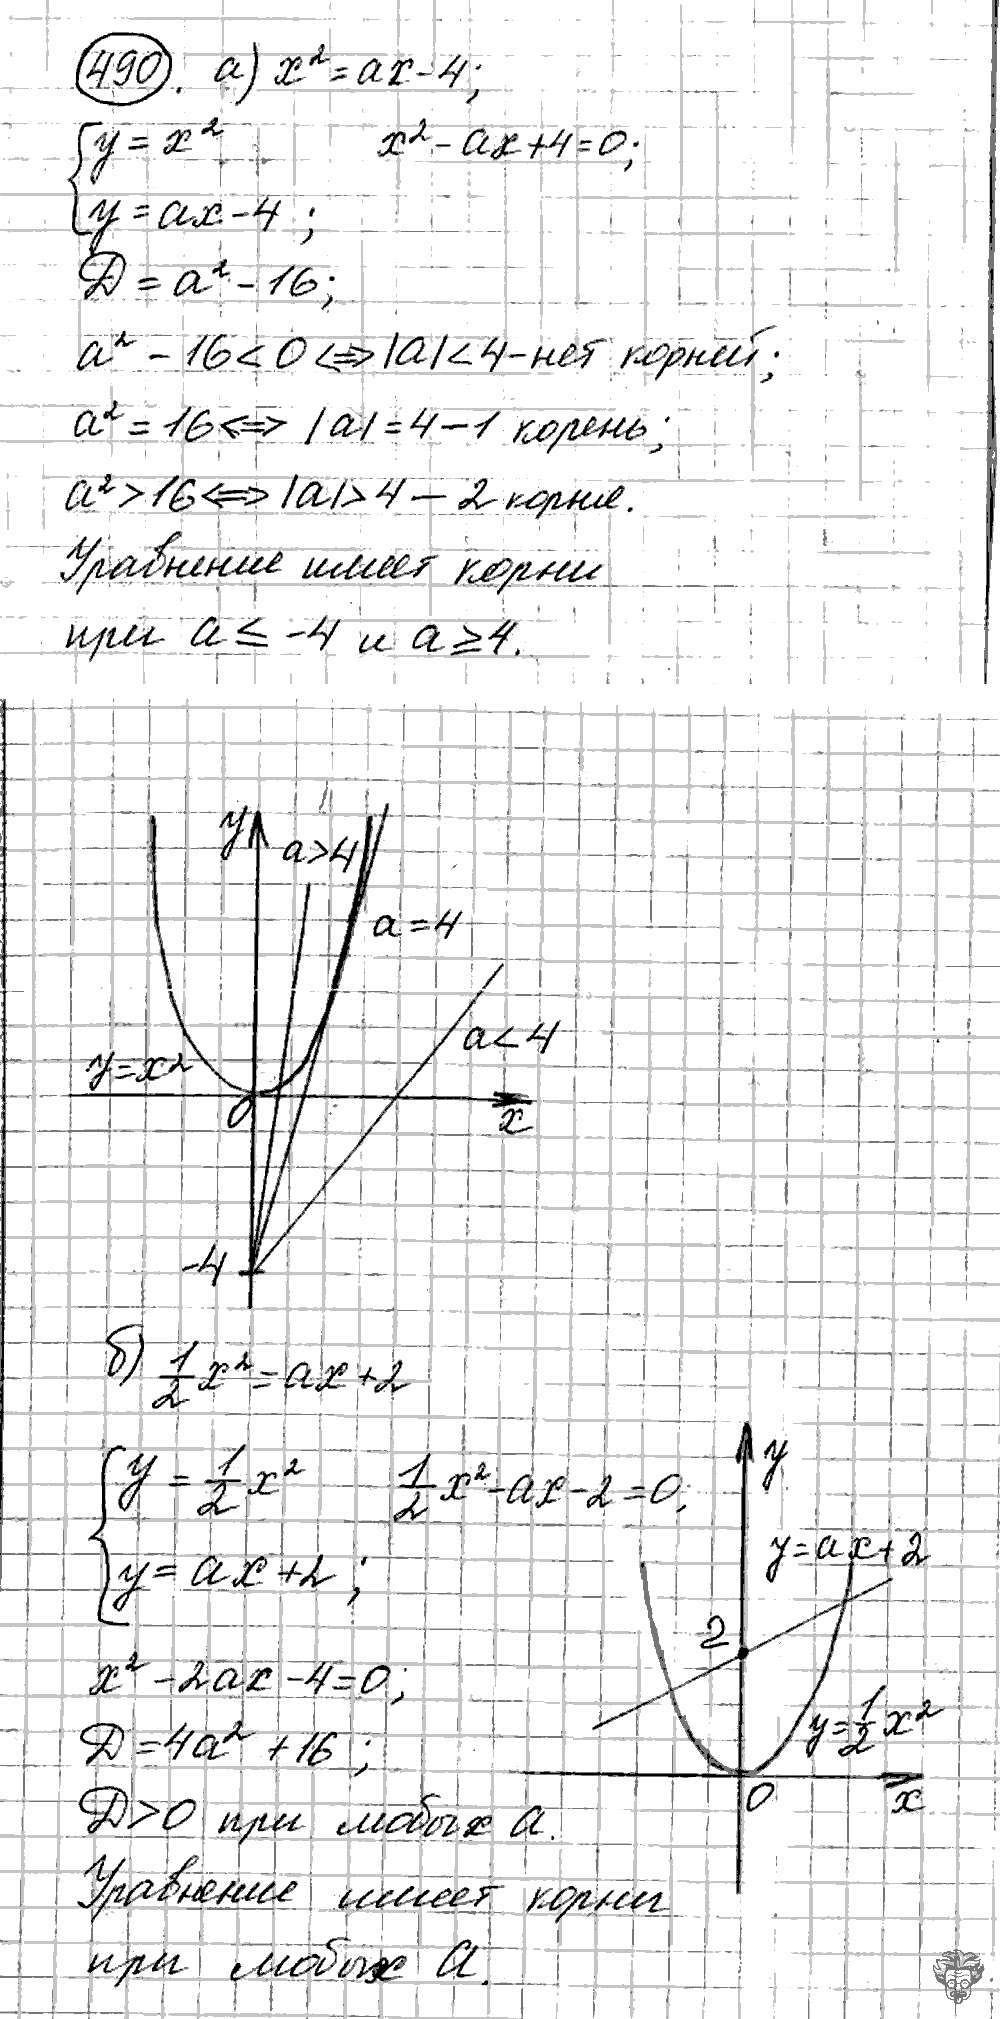 490. а) x² = ax - 4;
{ y = x²    x² - ax + 4 = 0;
y = ax - 4 ;
D = a² - 16;
a² - 16 < 0 <=> |a| < 4 - нет корней;
a² = 16 <=> |a| = 4 - 1 корень;
a² > 16 <=> |a| > 4 - 2 корня.
Уравнение имеет корни
при a ≤ -4 и a ≥ 4.
y
a > 4
a = 4
a < 4
y = x²
0
x
-4
б) 1/2 x² = ax + 2
{ y = 1/2 x²    1/2 x² - ax - 2 = 0;
y = ax + 2 ;
y
y = ax + 2
2
y = 1/2 x²
0
x
x² - 2ax - 4 = 0;
D = 4a² + 16 ;
D > 0 при любых a.
Уравнение имеет корни
при любых a.